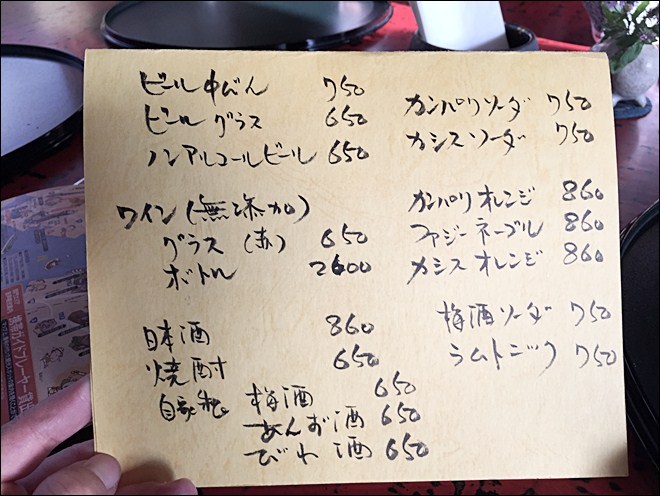 ビール中びん 750
ビール グラス 650
ノンアルコールビール 650
ワイン(無添加)
グラス(赤) 650
ボトル 2600
日本酒 860
焼酎 650
自家製 梅酒 650
あんず酒 650
びわ酒 650
カンパリソーダ 750
カシスソーダ 750
カンパリオレンジ 860
ファジーネーブル 860
カシスオレンジ 860
梅酒ソーダ 750
ラムトニック 750